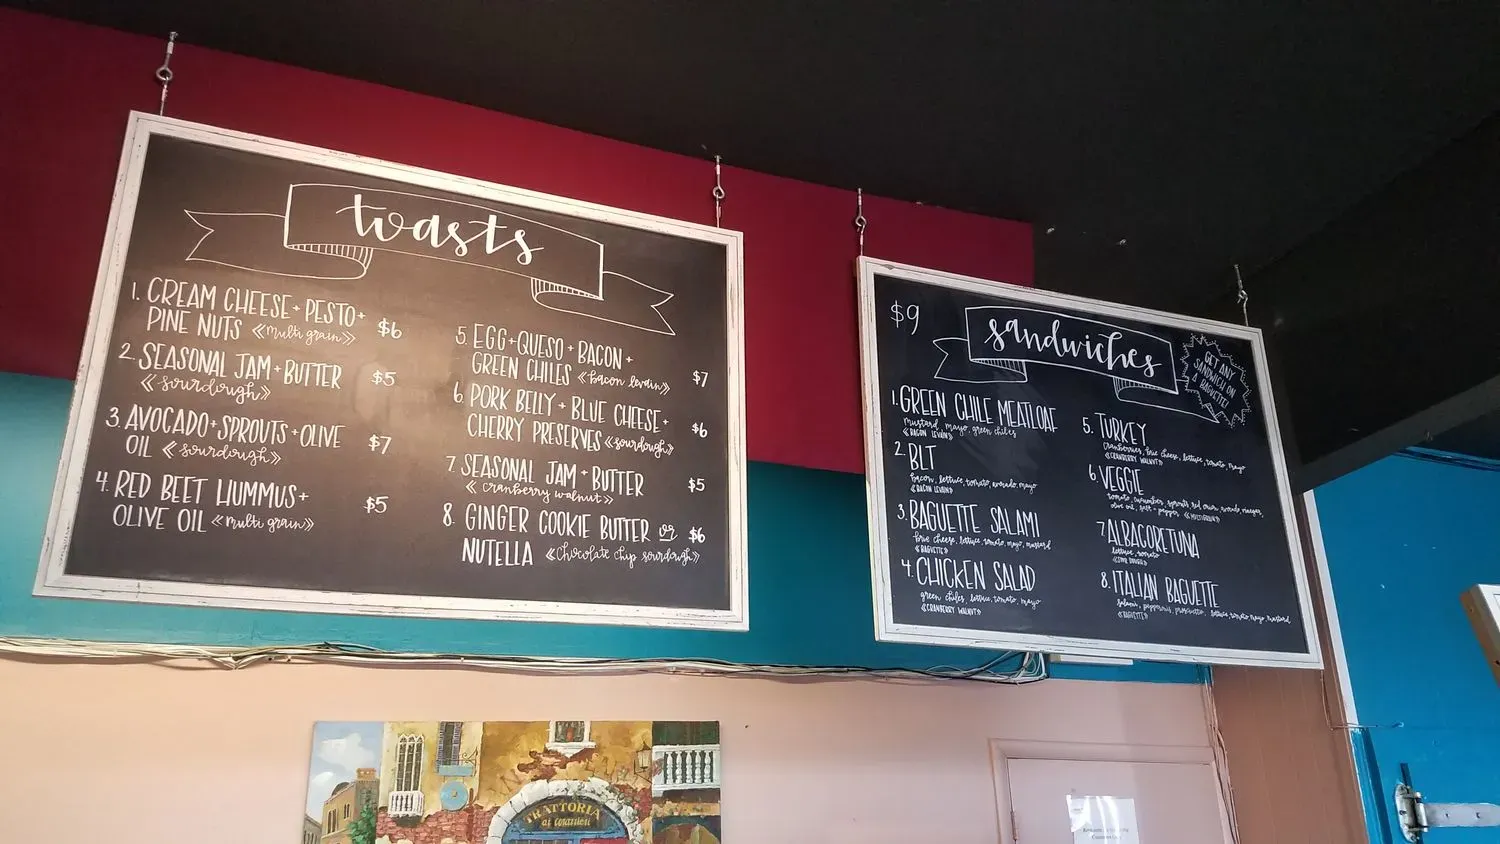 toasts
1. CREAM CHEESE + PESTO +
PINE NUTS «multi grain» $6
2. SEASONAL JAM + BUTTER $5
«sourdough»
3. AVOCADO + SPROUTS + OLIVE
OIL «sourdough» $7
4. RED BEET HUMMUS +
OLIVE OIL «multi grain» $5
5. EGG + QUESO + BACON +
GREEN CHILES «bacon levain» $7
6. PORK BELLY + BLUE CHEESE +
CHERRY PRESERVES «sourdough» $6
7. SEASONAL JAM + BUTTER $5
«cranberry walnut»
8. GINGER COOKIE BUTTER or $6
NUTELLA «chocolate chip sourdough»
$9
sandwiches
GET ANY
SANDWICH ON
A BAGUETTE!
1. GREEN CHILE MEATLOAF
mustard, mayo, green chiles
«BACON LEVAIN»
2. BLT
bacon, lettuce, tomato, avocado, mayo
«BACON LEVAIN»
3. BAGUETTE SALAMI
brie cheese, lettuce, tomato, mayo, mustard
«BAGUETTE»
4. CHICKEN SALAD
green chiles, lettuce, tomato, mayo
«CRANBERRY WALNUT»
5. TURKEY
cranberries, brie cheese, lettuce, tomato, mayo
«CRANBERRY WALNUT»
6. VEGGIE
tomato, cucumber, sprouts, red onion, avocado, vinegar,
olive oil, salt + pepper «MULTIGRAIN»
7. ALBACORE TUNA
lettuce, tomato
«SOUR DOUGH»
8. ITALIAN BAGUETTE
salami, pepperoni, prosciutto, lettuce, tomato, mayo, mustard
«BAGUETTE»
TRATTORIA